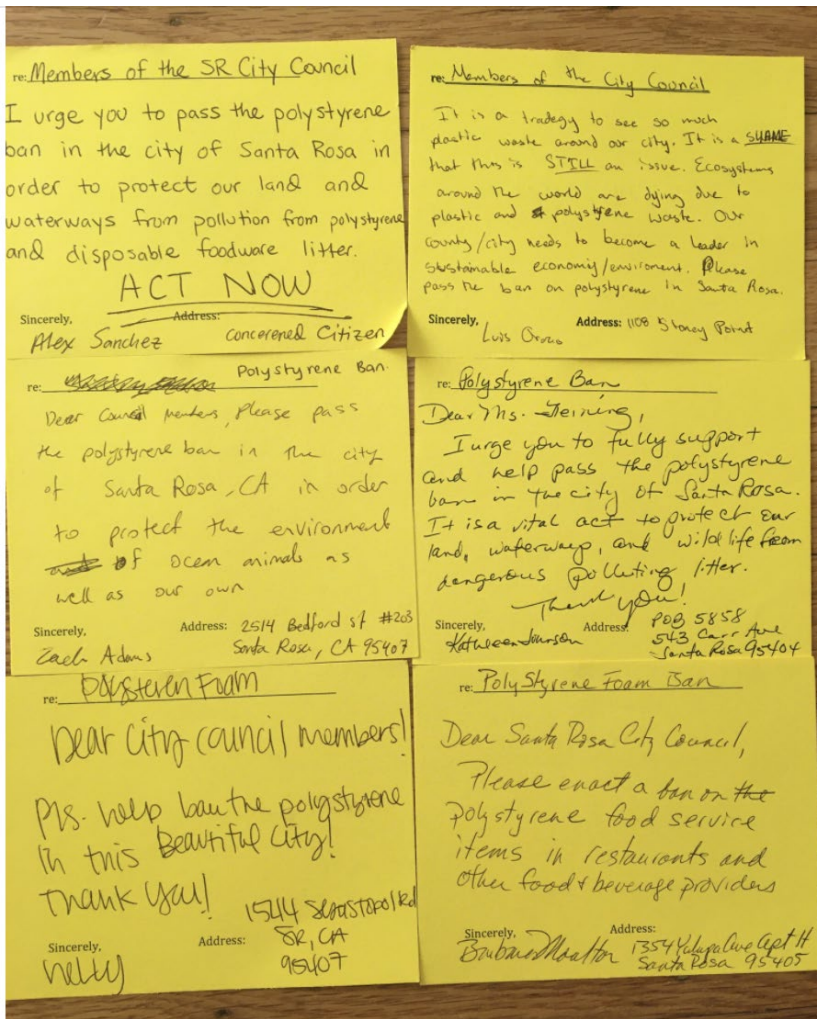 re: Members of the SR City Council
I urge you to pass the polystyrene
ban in the city of Santa Rosa in
order to protect our land and
waterways from pollution from polystyrene
and disposable foodware litter.
ACT NOW
Sincerely, Address:
Alex Sanchez concerened Citizen
re: Members of the City Council
It is a tradegy to see so much
plastic waste around our city. It is a SHAME
that this is STILL an issue. Ecosystems
around the world are dying due to
plastic and polystyrene waste. Our
county/city needs to become a leader in
sustainable economy/enviroment. Please
pass the ban on polystyrene in Santa Rosa.
Sincerely, Luis Address: 1108 Stoney Point
re: Polystyrene Ban.
Dear Council Members, Please pass
the polystyrene ban in the city
of Santa Rosa, CA in order
to protect the environment
of ocean animals as
well as our own
Sincerely, Address: 2514 Bedford st #203
Zach Adams Santa Rosa, CA 95407
re: Polystyrene Ban
Dear Ms.
I urge you to fully support
and help pass the polystyrene
ban in the city of Santa Rosa.
It is a vital act to protect our
land, waterways, and wildlife from
dangerous polluting litter.
Thank you!
Sincerely, Address: POB 5858
Kathleen 543 Carr Ave
Santa Rosa 95404
re: Polysteren Foam
Dear City council members!
Pls. help ban the polystyrene
in this Beautiful City!
Thank you!
Sincerely, Address: 1544 Sebastopol Rd
Nelly SR, CA
95407
re: PolyStyrene Foam Ban
Dear Santa Rosa City Council,
Please enact a ban on the
polystyrene food service
items in restaurants and
other food & beverage providers
Sincerely, Address:
Barbara Moulton 1354 Yulupa Ave Apt H
Santa Rosa 95405